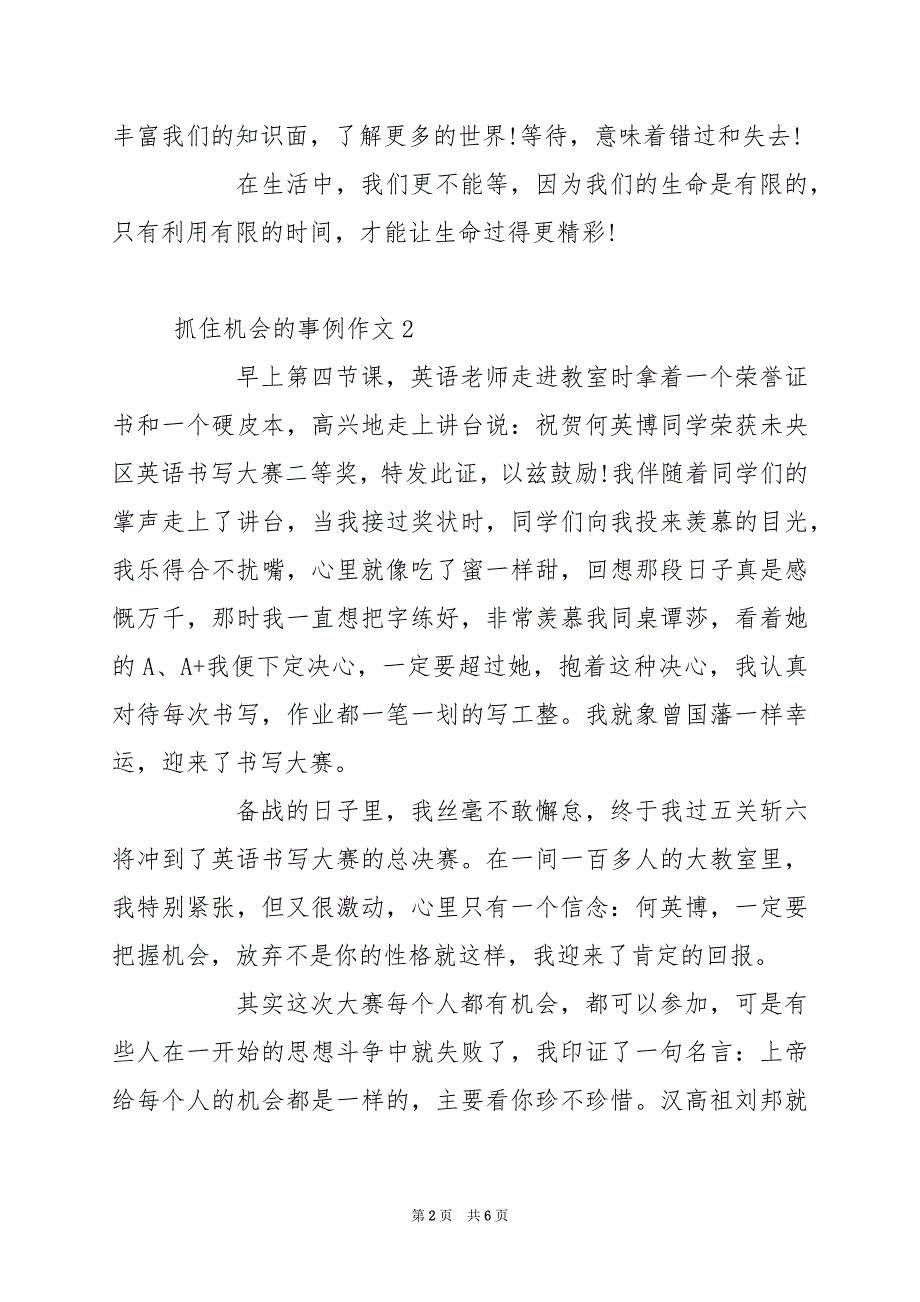 丰富我们的知识面，了解更多的世界!等待，意味着错过和失去!
在生活中，我们更不能等，因为我们的生命是有限的，
只有利用有限的时间，才能让生命过得更精彩!
抓住机会的事例作文2
早上第四节课，英语老师走进教室时拿着一个荣誉证
书和一个硬皮本，高兴地走上讲台说：祝贺何英博同学荣获未央
区英语书写大赛二等奖，特发此证，以兹鼓励!我伴随着同学们的
掌声走上了讲台，当我接过奖状时，同学们向我投来羡慕的目光，
我乐得合不扰嘴，心里就像吃了蜜一样甜，回想那段日子真是感
慨万千，那时我一直想把字练好，非常羡慕我同桌谭莎，看着她
的A、A+我便下定决心，一定要超过她，抱着这种决心，我认真
对待每次书写，作业都一笔一划的写工整。我就象曾国藩一样幸
运，迎来了书写大赛。
备战的日子里，我丝毫不敢懈怠，终于我过五关斩六
将冲到了英语书写大赛的总决赛。在一间一百多人的大教室里，
我特别紧张，但又很激动，心里只有一个信念：何英博，一定要
把握机会，放弃不是你的性格就这样，我迎来了肯定的回报。
其实这次大赛每个人都有机会，都可以参加，可是有
些人在一开始的思想斗争中就失败了，我印证了一句名言：上帝
给每个人的机会都是一样的，主要看你珍不珍惜。汉高祖刘邦就
第2页 共6页